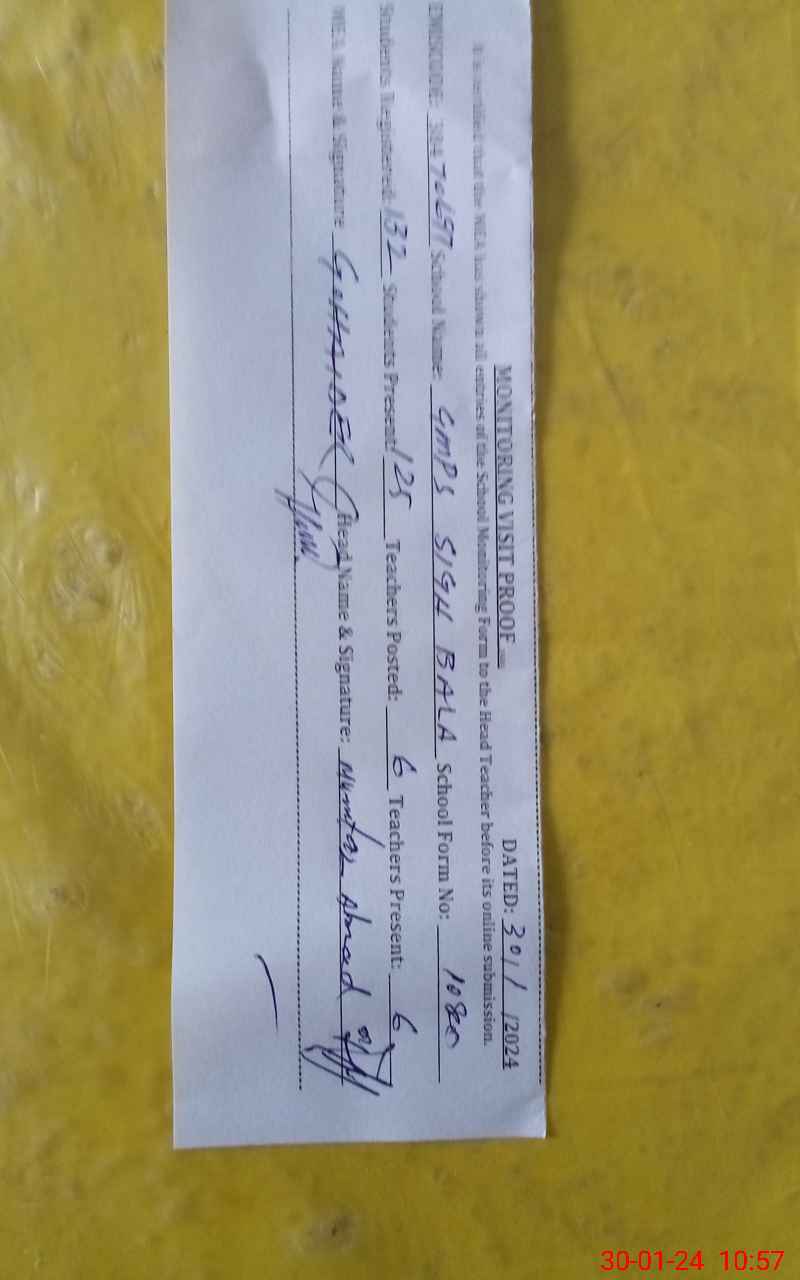 MONITORING VISIT PROOF DATED: 30/1/2024
It is certified that the MEA has shown all entries of the School Monitoring Form to the Head Teacher before its online submission.
EMISCODE: School Name: GMPS SIGH BALA School Form No:
Students Registered: 132 Students Present: 125 Teachers Posted: 6 Teachers Present: 6
MEA Name & Signature: G. HAIDER Head Name & Signature: Mumtaz Ahmad
30-01-24 10:57